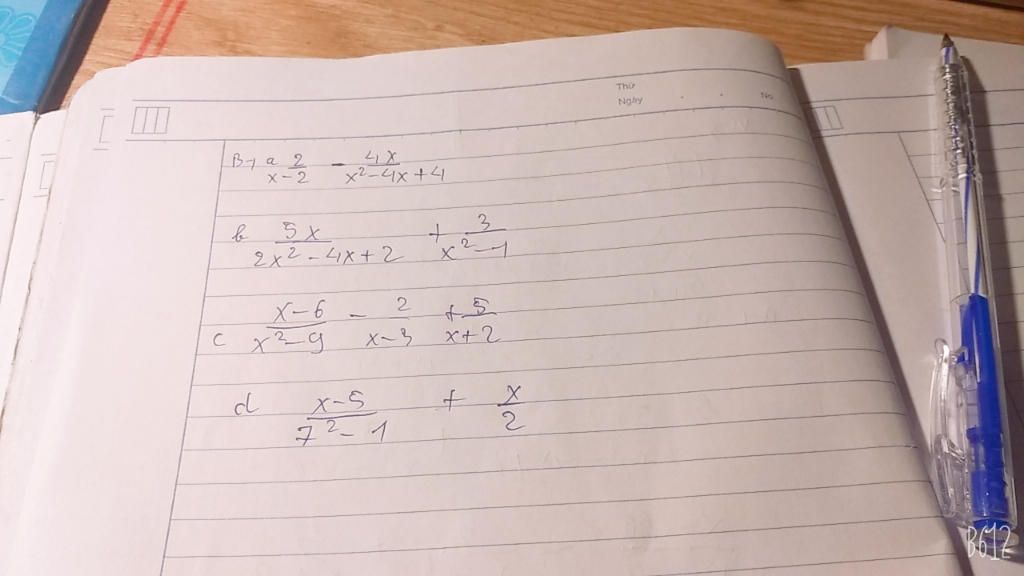 Thứ
Ngày . . No
B1, a 2/(x-2) - 4x/(x²-4x+4)
b 5x/(2x²-4x+2) + 3/(x²-1)
c (x-6)/(x²-9) - 2/(x-3) + 5/(x+2)
d (x-5)/(7²-1) + x/2
B612